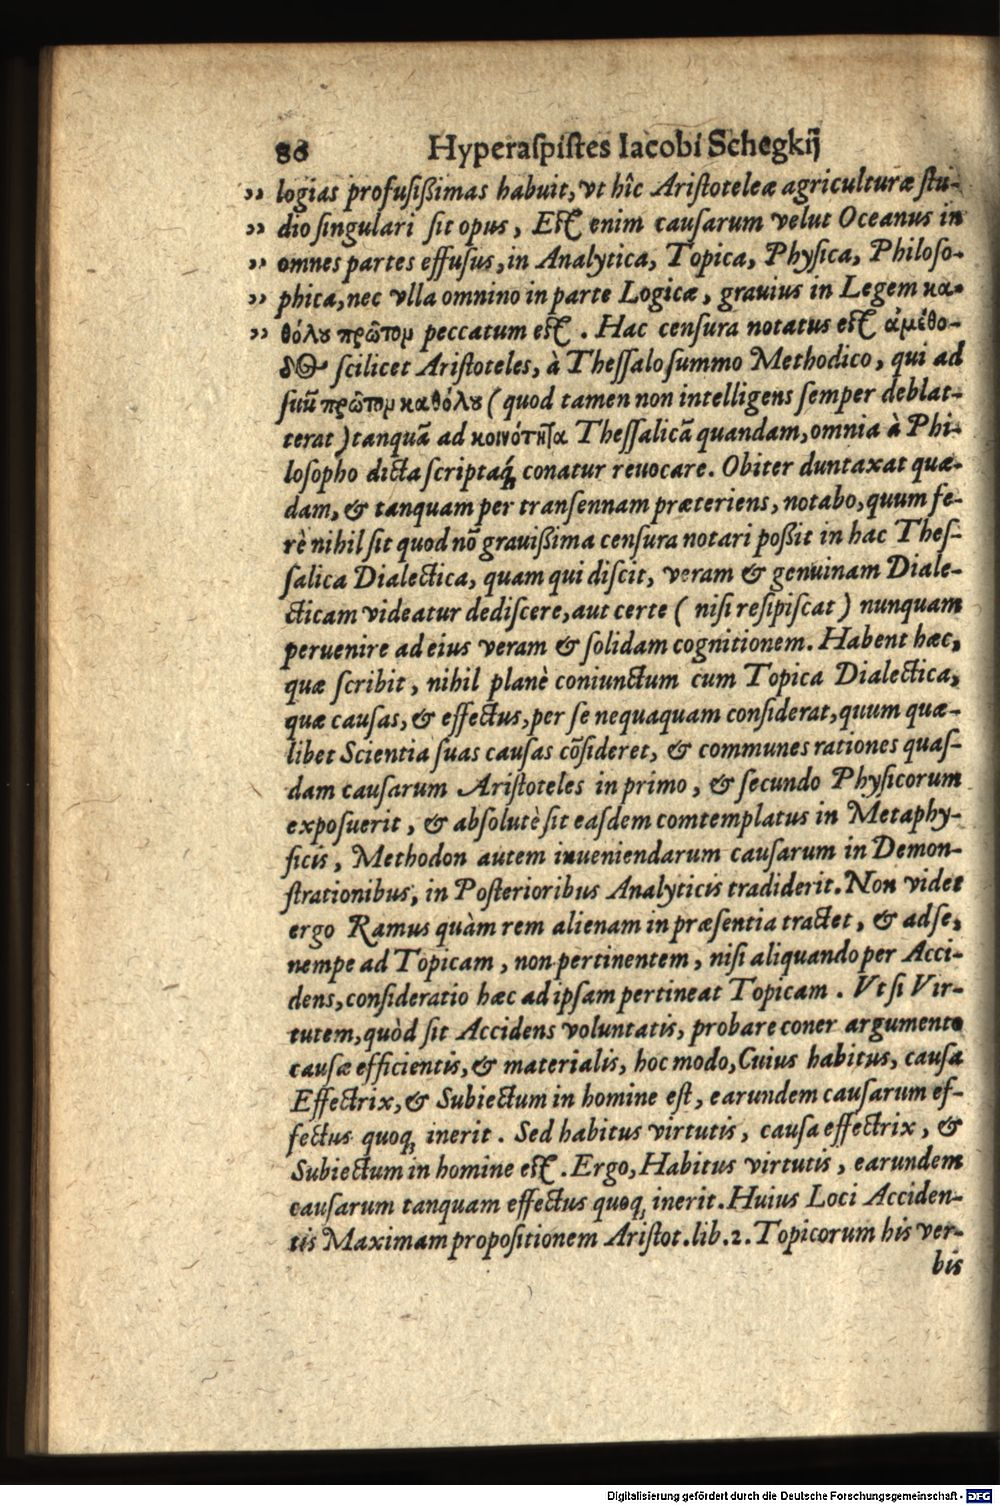 86 Hyperaſpiſtes Iacobi Schegkij
„ logias profuſiſsimas habuit, vt hîc Ariſtoteleæ agriculturæ ſtu-
„ dio ſingulari ſit opus, Eſt enim cauſarum velut Oceanus in
„ omnes partes effuſus, in Analytica, Topica, Phyſica, Philoſo-
„ phica, nec vlla omnino in parte Logicæ, grauius in Legem κα-
„ θόλου πρῶτον peccatum eſt. Hac cenſura notatus eſt ἀμέθο-
δος ſcilicet Ariſtoteles, à Theſſalo ſummo Methodico, qui ad
ſuū πρῶτον καθόλου (quod tamen non intelligens ſemper deblat-
terat) tanquā ad κοινότητα Theſſalicā quandam, omnia à Phi-
loſopho dicta ſcriptaq́; conatur reuocare. Obiter duntaxat quæ-
dam, & tanquam per tranſennam præteriens, notabo, quum fe-
rè nihil ſit quod nō grauiſsima cenſura notari poſsit in hac Theſ-
ſalica Dialectica, quam qui diſcit, veram & genuinam Diale-
cticam videatur dediſcere, aut certe (niſi reſipiſcat) nunquam
peruenire ad eius veram & ſolidam cognitionem. Habent hæc,
quæ ſcribit, nihil planè coniunctum cum Topica Dialectica,
quæ cauſas, & effectus, per ſe nequaquam conſiderat, quum quæ-
libet Scientia ſuas cauſas cōſideret, & communes rationes quaſ-
dam cauſarum Ariſtoteles in primo, & ſecundo Phyſicorum
expoſuerit, & abſolutè ſit eaſdem comtemplatus in Metaphy-
ſicis, Methodon autem inueniendarum cauſarum in Demon-
ſtrationibus, in Poſterioribus Analyticis tradiderit. Non videt
ergo Ramus quàm rem alienam in præſentia tractet, & ad ſe,
nempe ad Topicam, non pertinentem, niſi aliquando per Acci-
dens, conſideratio hæc ad ipſam pertineat Topicam. Vt ſi Vir-
tutem, quòd ſit Accidens voluntatis, probare coner argumento
cauſæ efficientis, & materialis, hoc modo, Cuius habitus, cauſa
Effectrix, & Subiectum in homine eſt, earundem cauſarum ef-
fectus quoq; inerit. Sed habitus virtutis, cauſa effectrix, &
Subiectum in homine eſt. Ergo, Habitus virtutis, earundem
cauſarum tanquam effectus quoq; inerit. Huius Loci Acciden-
tis Maximam propoſitionem Ariſtot. lib. 2. Topicorum his ver-
bis
Digitalisierung gefördert durch die Deutsche Forschungsgemeinschaft - DFG